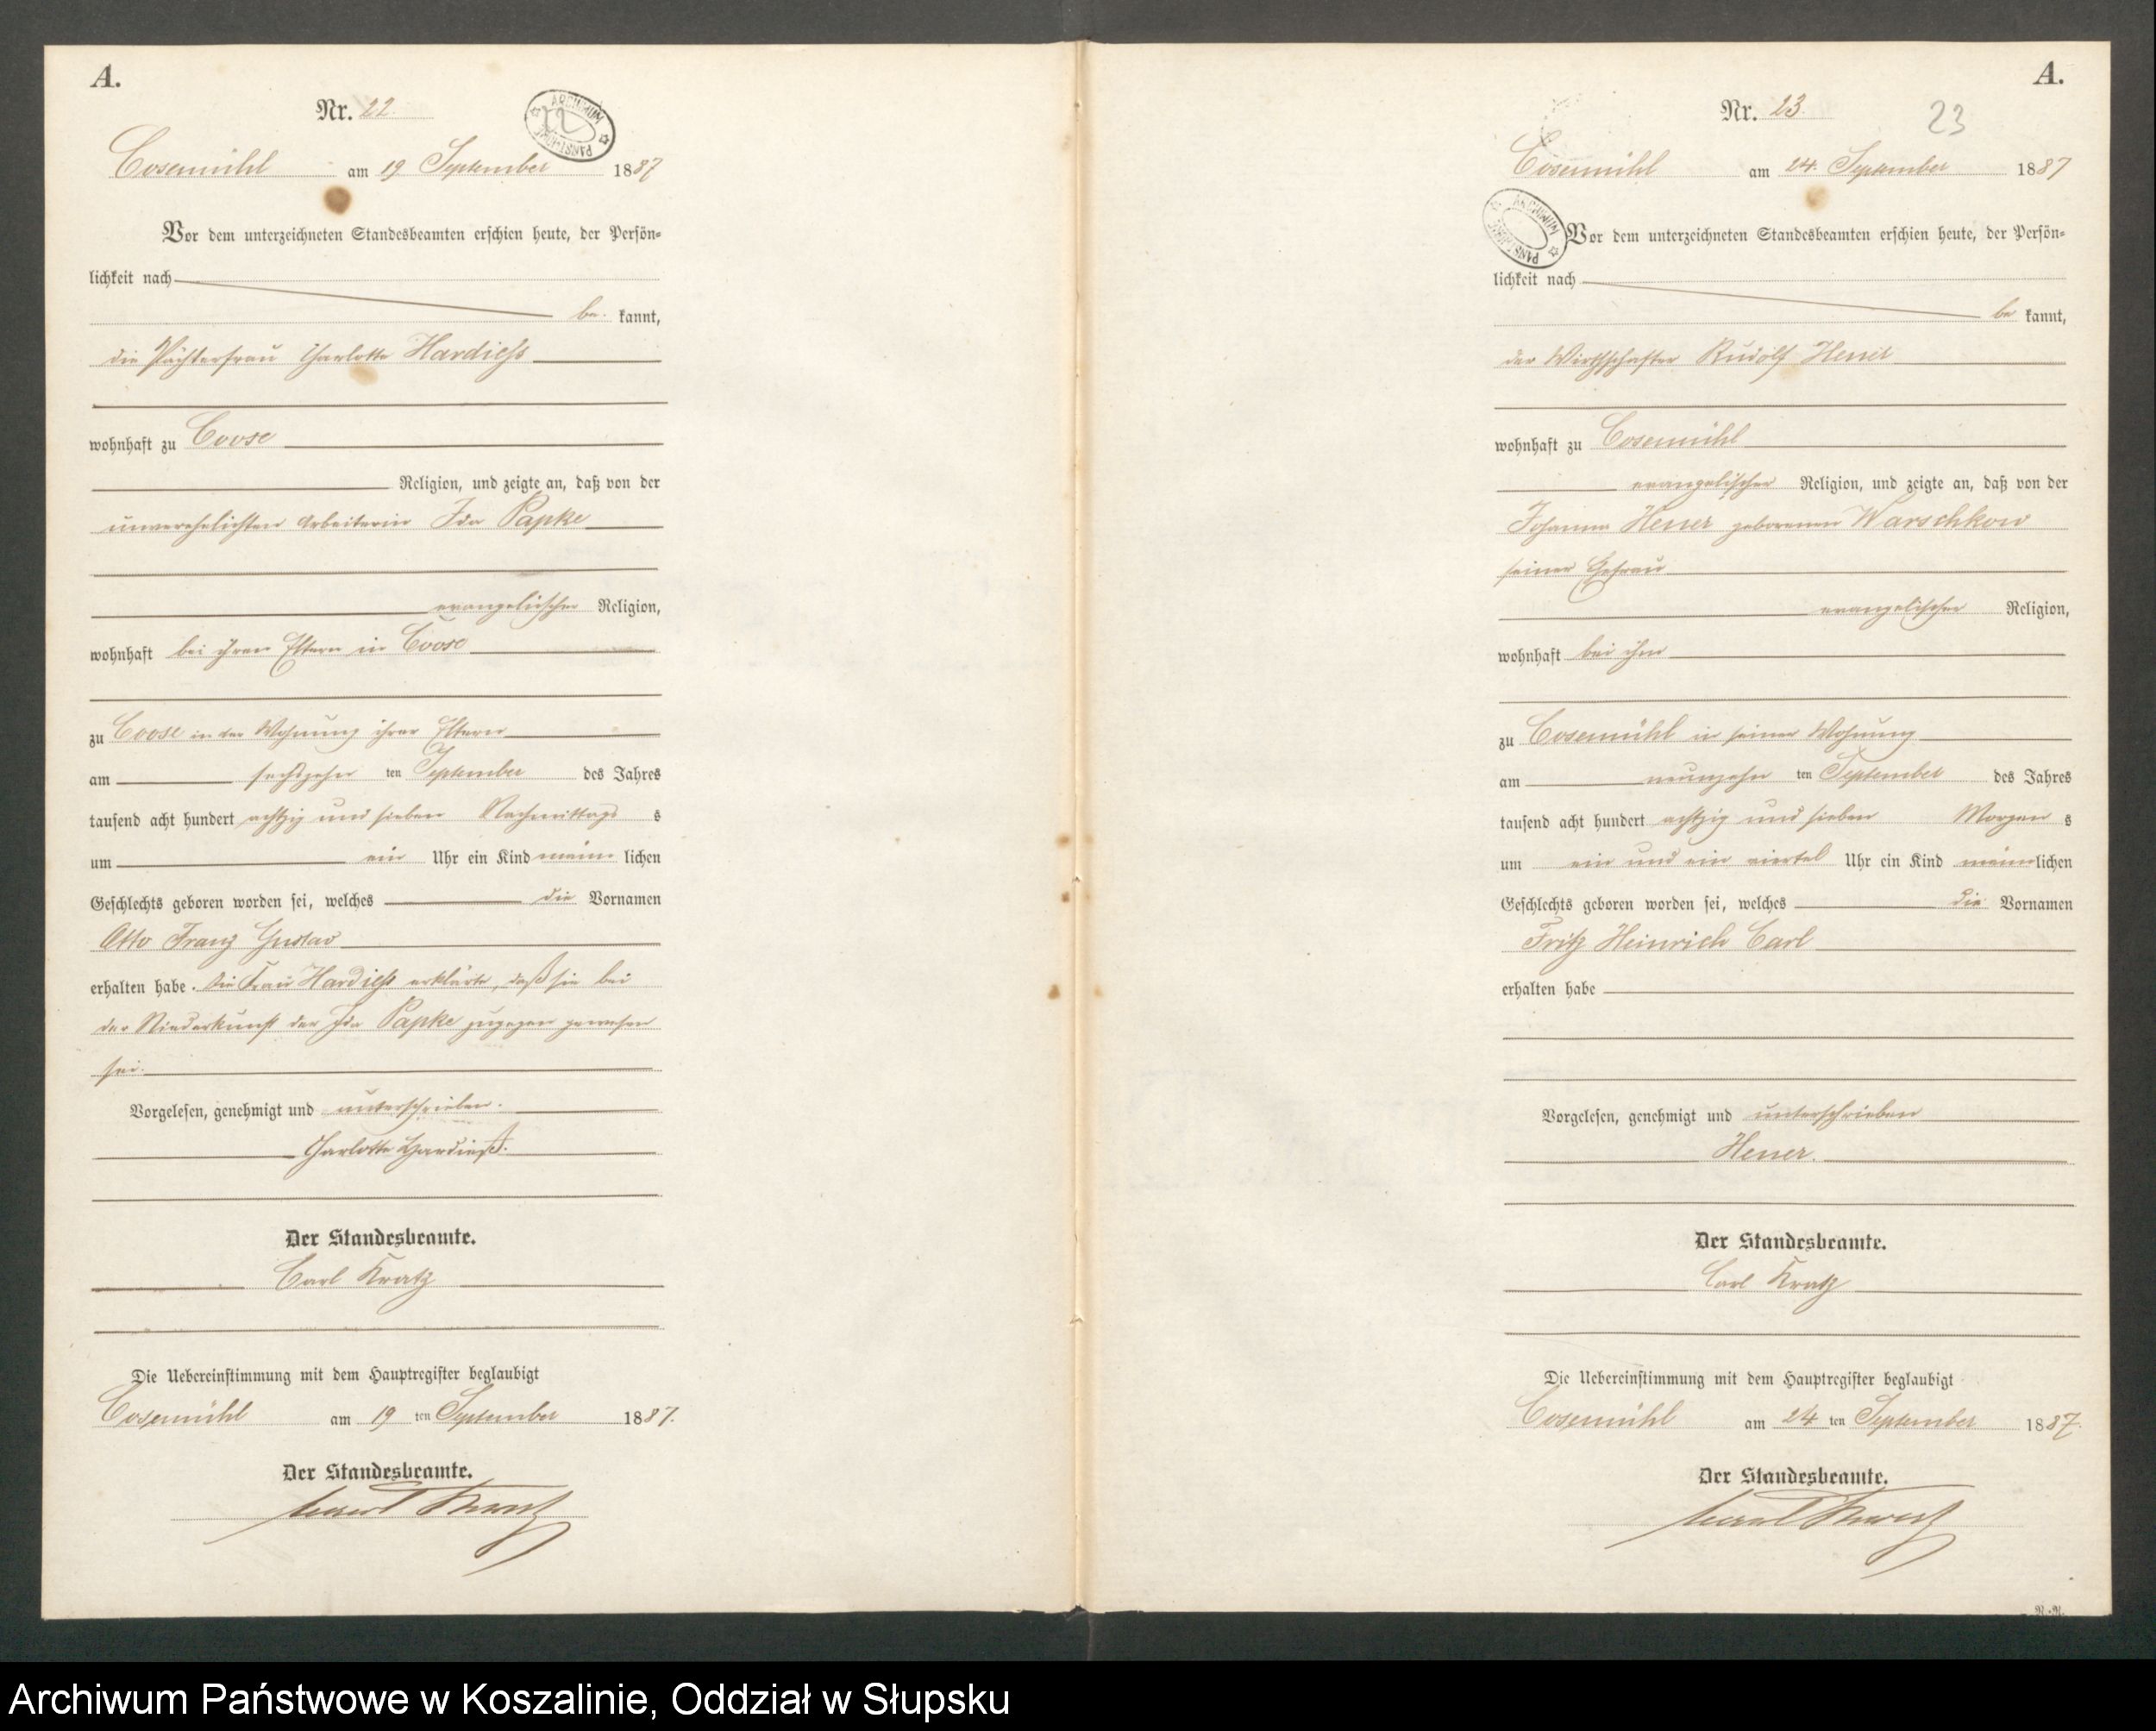 A.
Nr. 22.
ARCHIWUM PAŃSTWOWE
Cosemühl am 19 September 1887
Vor dem unterzeichneten Standesbeamten erschien heute, der Persön-
lichkeit nach
be. kannt,
die Pächterfrau Charlotte Hardiess
wohnhaft zu Coose
Religion, und zeigte an, daß von der
unverehelichten Arbeiterin Ida Papke
evangelischer Religion,
wohnhaft bei ihren Eltern in Coose
zu Coose in der Wohnung ihrer Eltern
am sechszehn ten September des Jahres
tausend acht hundert achtzig und sieben Nachmittags s
um ein Uhr ein Kind männ lichen
Geschlechts geboren worden sei, welches die Vornamen
Otto Franz Gustav
erhalten habe. Die Frau Hardiess erklärte, daß sie bei
der Niederkunft der Ida Papke zugegen gewesen
sei.
Vorgelesen, genehmigt und unterschrieben.
Charlotte Hardieß.
Der Standesbeamte.
Carl Kratz
Die Uebereinstimmung mit dem Hauptregister beglaubigt
Cosemühl am 19 ten September 1887.
Der Standesbeamte.
Carl Kratz
A.
Nr. 23.
23
Cosemühl am 24. September 1887
ARCHIWUM PAŃSTWOWE
Vor dem unterzeichneten Standesbeamten erschien heute, der Persön-
lichkeit nach
be kannt,
der Wirthschafter Rudolf Heuer
wohnhaft zu Cosemühl
evangelischer Religion, und zeigte an, daß von der
Johanna Heuer geborenen Warschkow
seiner Ehefrau
evangelischer Religion,
wohnhaft bei ihm
zu Cosemühl in seiner Wohnung
am neunzehn ten September des Jahres
tausend acht hundert achtzig und sieben Morgen s
um ein und ein viertel Uhr ein Kind männ lichen
Geschlechts geboren worden sei, welches die Vornamen
Fritz Heinrich Carl
erhalten habe
Vorgelesen, genehmigt und unterschrieben
Heuer.
Der Standesbeamte.
Carl Kratz
Die Uebereinstimmung mit dem Hauptregister beglaubigt
Cosemühl am 24 ten September 1887.
Der Standesbeamte.
Carl Kratz
Archiwum Państwowe w Koszalinie, Oddział w Słupsku